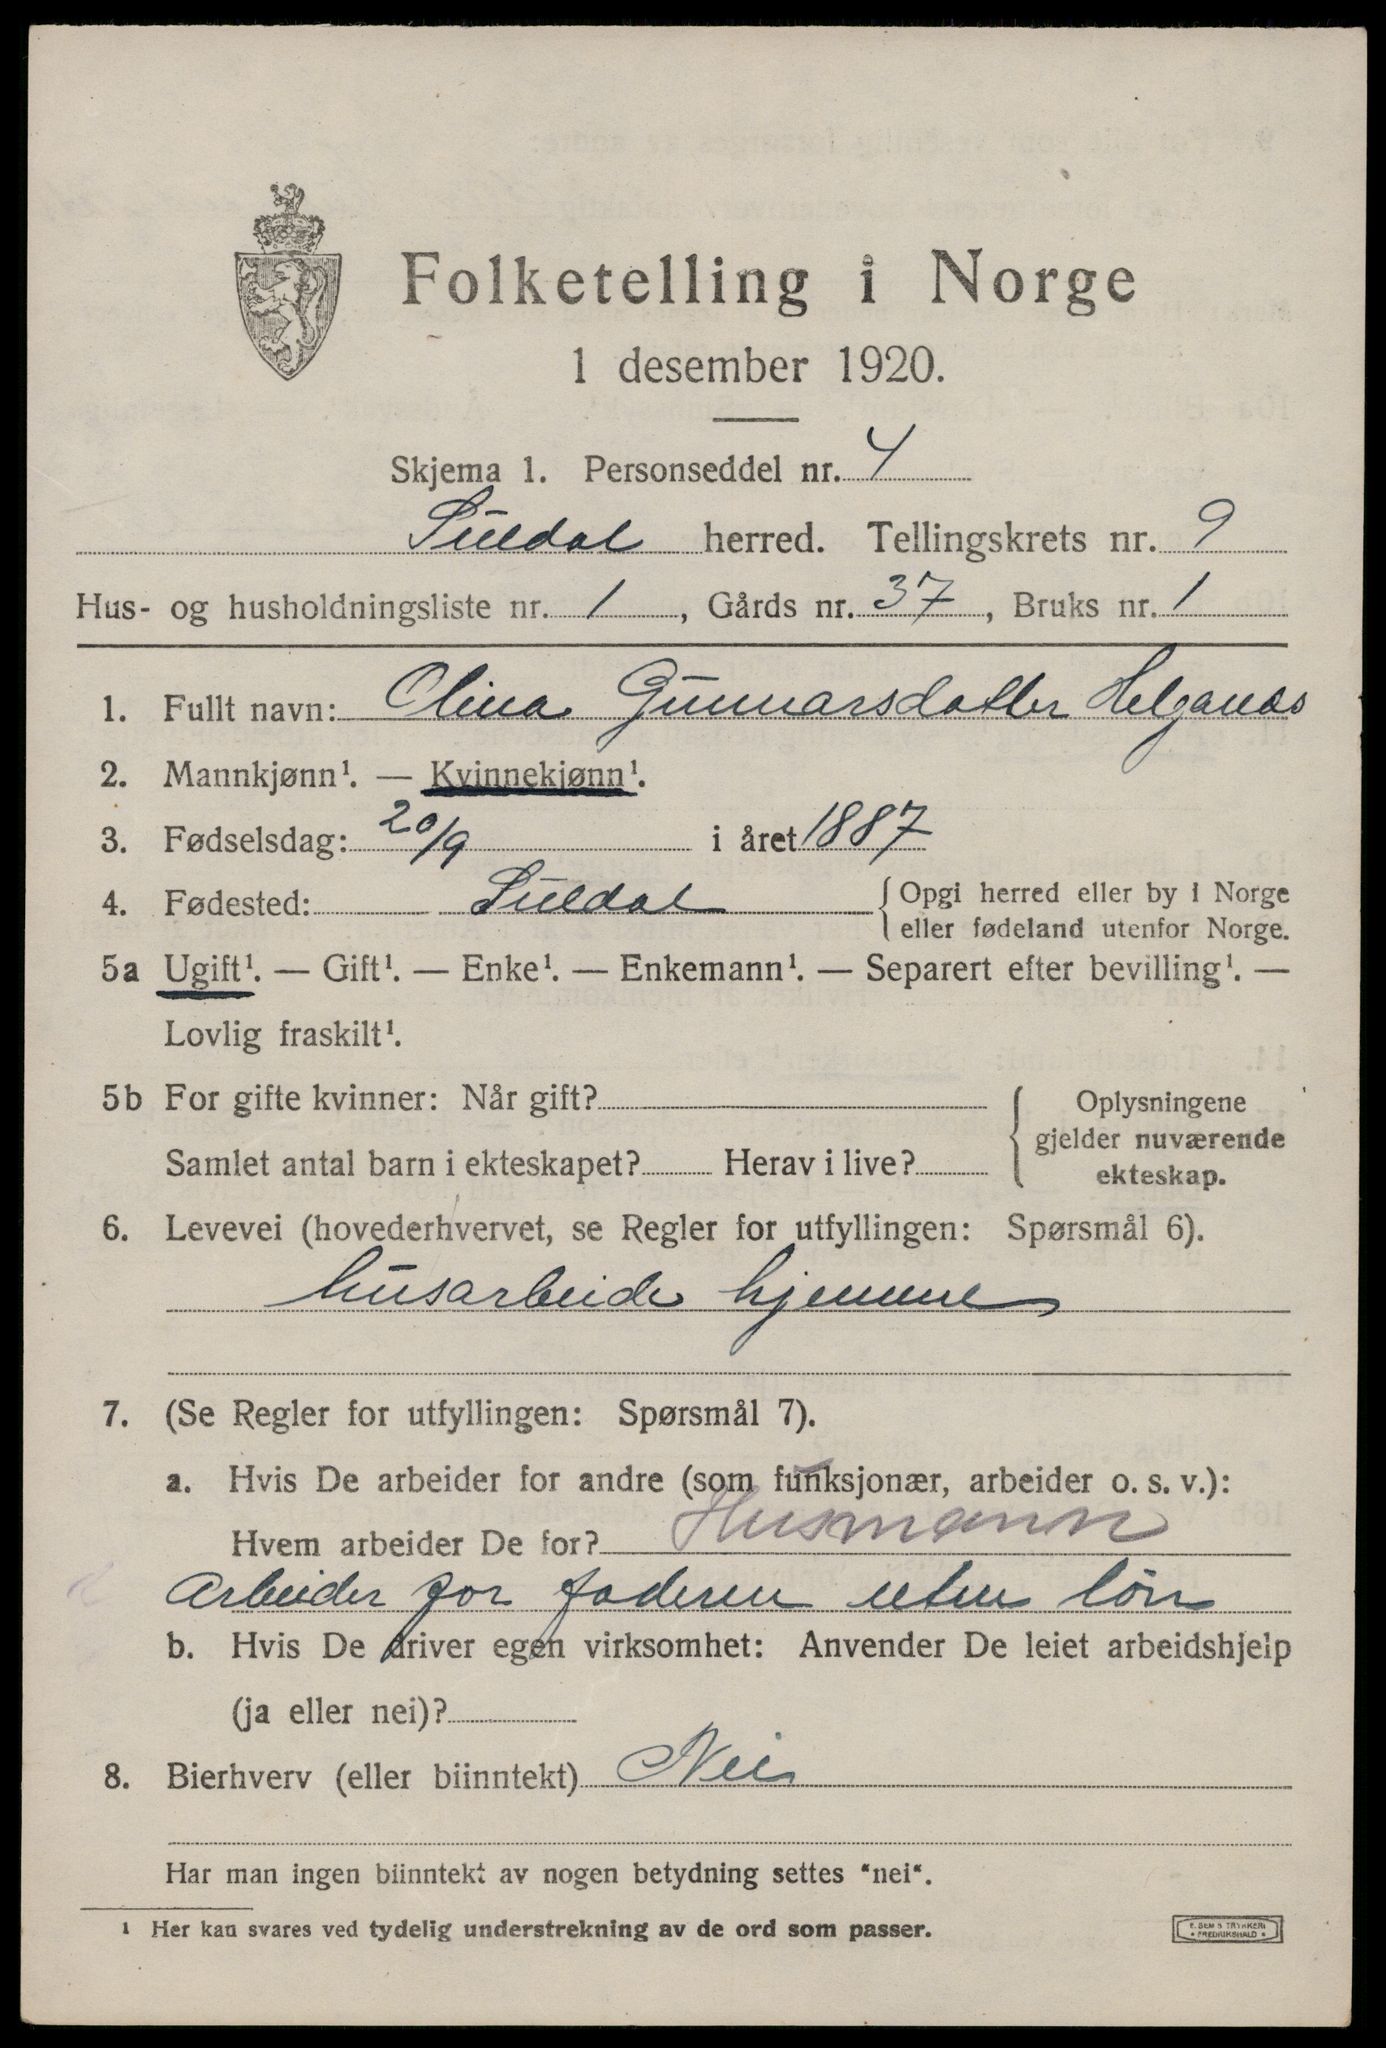 Folketelling i Norge
1 desember 1920.
Skjema 1. Personseddel nr. 4
Suldal herred. Tellingskrets nr. 9
Hus- og husholdningsliste nr. 1, Gårds nr. 37, Bruks nr. 1
1. Fullt navn: Olina Gunnarsdatter Helganes
2. Mannkjønn¹. — Kvinnekjønn¹.
3. Fødselsdag: 20/9 i året 1887
4. Fødested: Suldal { Opgi herred eller by i Norge
eller fødeland utenfor Norge.
5a Ugift¹. — Gift¹. — Enke¹. — Enkemann¹. — Separert efter bevilling¹. —
Lovlig fraskilt¹.
5b For gifte kvinner: Når gift?
Samlet antal barn i ekteskapet? Herav i live?
{ Oplysningene
gjelder nuværende
ekteskap.
6. Levevei (hovederhvervet, se Regler for utfyllingen: Spørsmål 6).
husarbeide hjemme
7. (Se Regler for utfyllingen: Spørsmål 7).
a. Hvis De arbeider for andre (som funksjonær, arbeider o. s. v.):
Hvem arbeider De for? Husmann
Arbeider for faderen uten lön
b. Hvis De driver egen virksomhet: Anvender De leiet arbeidshjelp
(ja eller nei)?
8. Bierhverv (eller biinntekt) Nei
Har man ingen biinntekt av nogen betydning settes "nei".
¹ Her kan svares ved tydelig understrekning av de ord som passer.
E. SEM'S TRYKKERI
FREDRIKSHALD